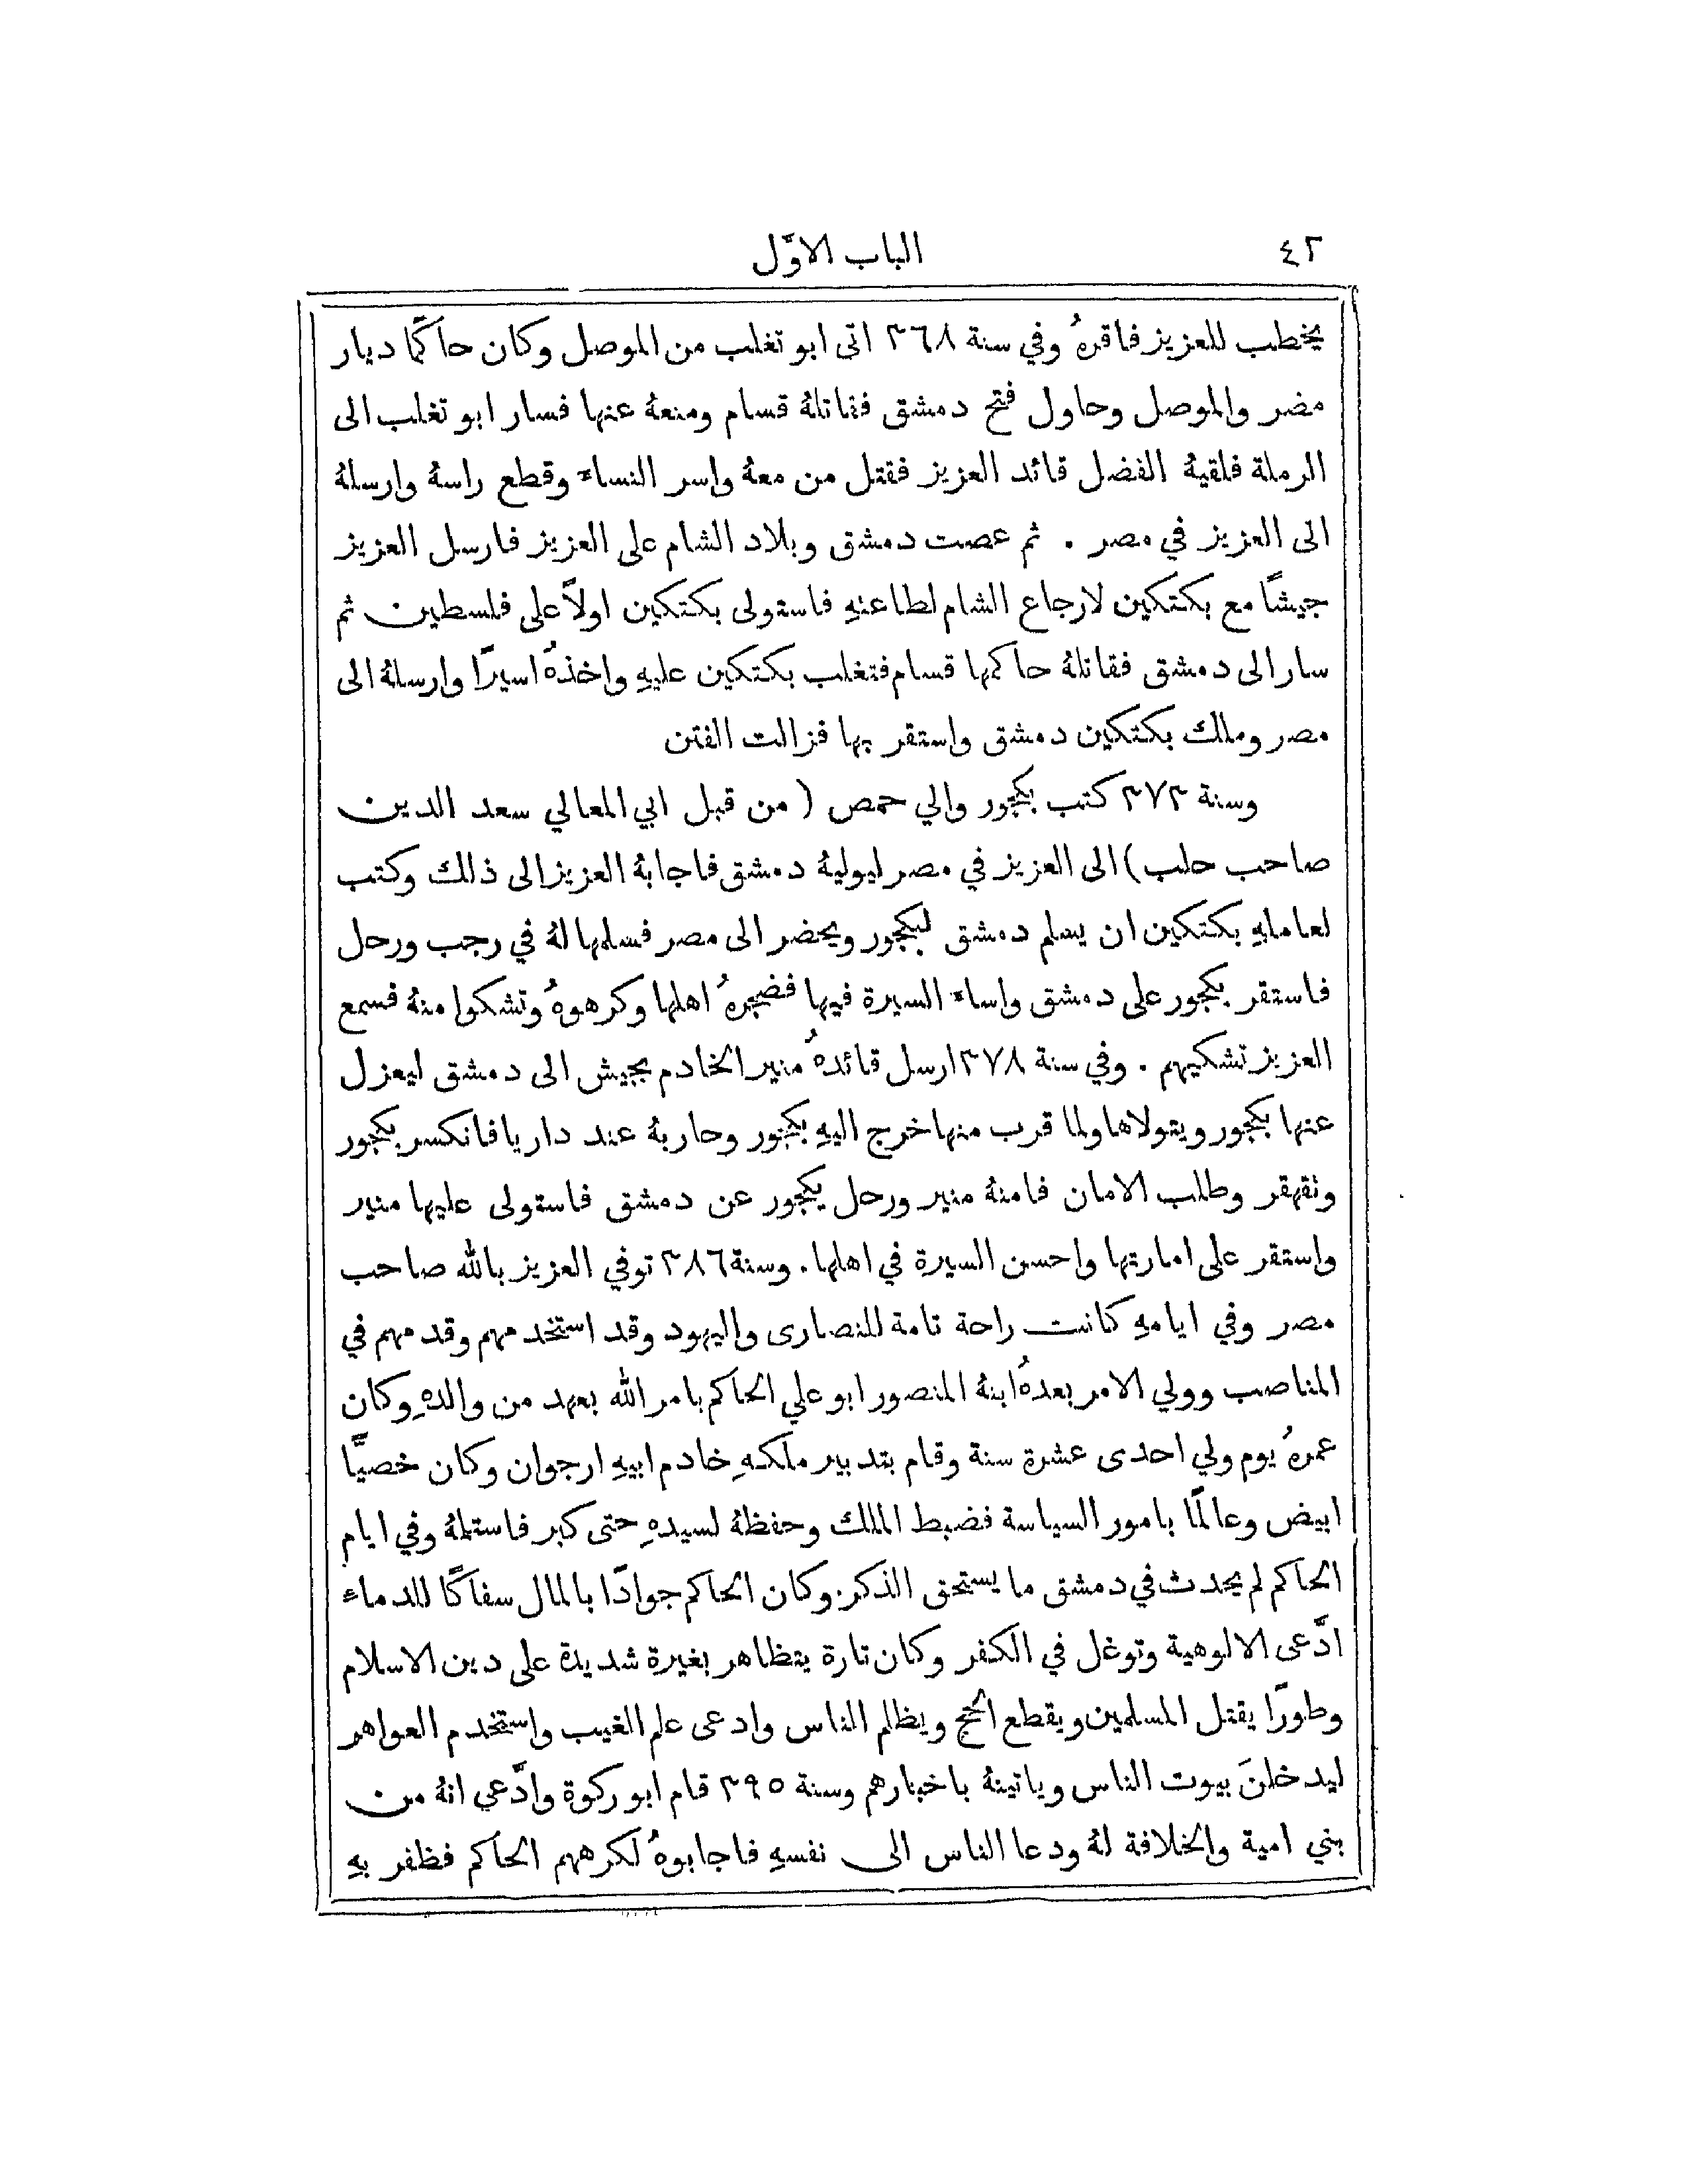 ٤٢ الباب الاوّل
يخطب للعزيز فاقرهُ وفي سنة ٣٦٨ اتى ابو تغلب من الموصل وكان حاكمًا ديار
مضر والموصل وحاول فتح دمشق فقاتلهُ قسام ومنعهُ عنها فسار ابو تغلب الى
الرملة فلقيهُ الفضل قائد العزيز فقتل من معهُ واسر النساء وقطع راسهُ وارسلهُ
الى العزيز في مصر . ثم عصت دمشق وبلاد الشام على العزيز فارسل العزيز
جيشًا مع بكتكين لارجاع الشام لطاعتهِ فاستولى بكتكين اولاً على فلسطين ثم
سار الى دمشق فقاتلهُ حاكمها قسام فتغلب بكتكين عليهِ واخذهُ اسيرًا وارسلهُ الى
مصر وملك بكتكين دمشق واستقر بها فزالت الفتن
وسنة ٣٧٣ كتب بكجور والي حمص ( من قبل ابي المعالي سعد الدين
صاحب حلب ) الى العزيز في مصر ليوليهُ دمشق فاجابهُ العزيز الى ذلك وكتب
لعاملهِ بكتكين ان يسلم دمشق لبكجور ويحضر الى مصر فسلمها لهُ في رجب ورحل
فاستقر بكجور على دمشق واساء السيرة فيها فضجرهُ اهلها وكرهوهُ وتشكوا منهُ فسمع
العزيز تشكيهم . وفي سنة ٣٧٨ ارسل قائدهُ منير الخادم بجيش الى دمشق ليعزل
عنها بكجور ويتولاها ولما قرب منها خرج اليهِ بكجور وحاربهُ عند داريا فانكسر بكجور
وتقهقر وطلب الامان فامنهُ منير ورحل بكجور عن دمشق فاستولى عليها منير
واستقر على امارتها واحسن السيرة في اهلها . وسنة ٣٨٦ توفي العزيز بالله صاحب
مصر وفي ايامهِ كانت راحة تامة للنصارى واليهود وقد استخدمهم وقدمهم في
المناصب وولي الامر بعدهُ ابنهُ المنصور ابو علي الحاكم بامر الله بعهد من والدهِ وكان
عمرهُ يوم ولي احدى عشرة سنة وقام بتدبير ملكهِ خادم ابيهِ ارجوان وكان خصيًّا
ابيض وعالمًا بامور السياسة فضبط الملك وحفظهُ لسيدهِ حتى كبر فاستلمهُ وفي ايام
الحاكم لم يحدث في دمشق ما يستحق الذكر . وكان الحاكم جوادًا بالمال سفاكًا للدماء
ادّعى الالوهية وتوغل في الكفر وكان تارة يتظاهر بغيرة شديدة على دين الاسلام
وطورًا يقتل المسلمين ويقطع الحج ويظلم الناس وادعى علم الغيب واستخدم العواهر
ليدخلنَ بيوت الناس وياتينهُ باخبارهم وسنة ٣٩٥ قام ابو ركوة وادّعى انهُ من
بني امية والخلافة لهُ ودعا الناس الى نفسهِ فاجابوهُ لكرههم الحاكم فظفر بهِ